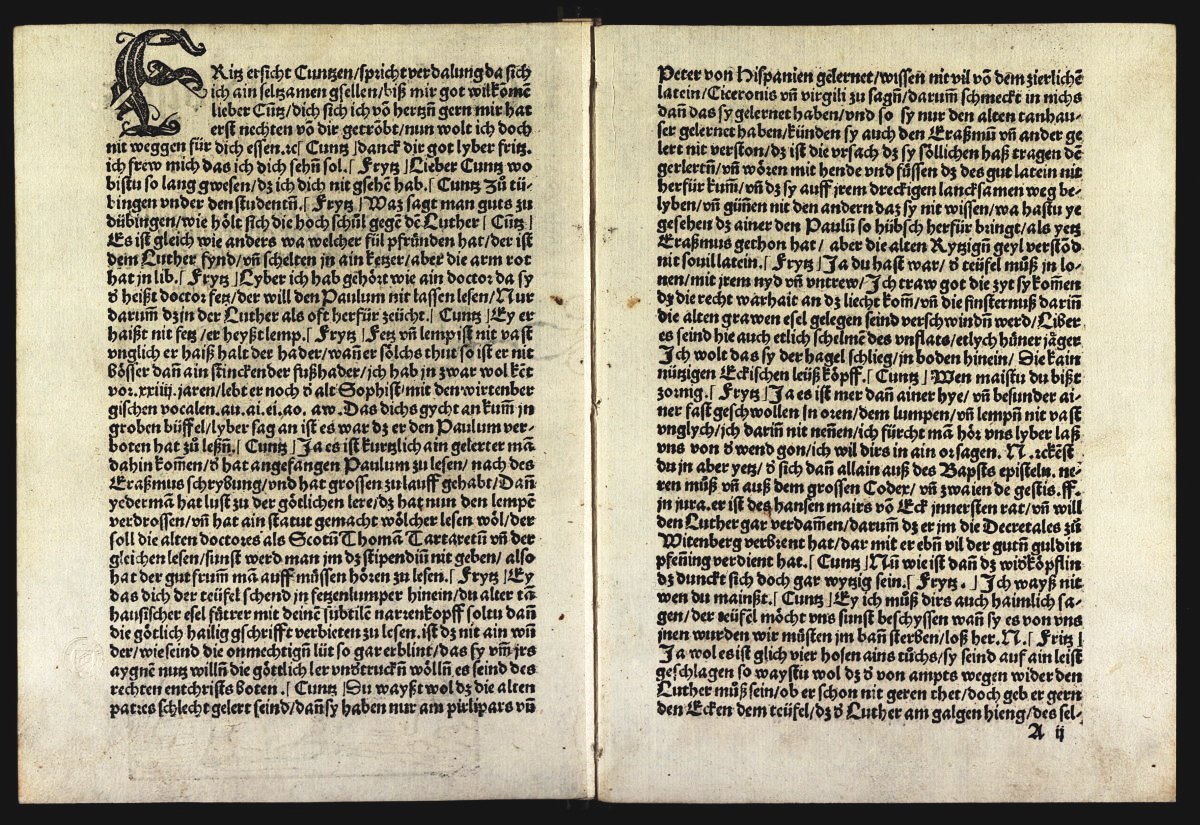 FRitz ersicht Cuntzen/spricht verdalung da sich
ich ain seltzamen gsellen/biß mir got wilkōmē
lieber Cūtz/dich sich ich vō hertzñ gern mir hat
erst nechten vō dir getröbt/nun wolt ich doch
nit weggen für dich essen.ꝛc⌈ Cuntz ⌋danck dir got lyber fritz.
ich frew mich das ich dich sehñ sol.⌈ Frytz ⌋Lieber Cuntz wo
bistu so lang gwesen/dz ich dich nit gsehē hab.⌈ Cuntz Zů tü-
bingen vnder den studentñ.⌈ Frytz ⌋Waz sagt man guts zu
dübingen/wie hölt sich die hoch schůl gegē dē Luther⌈ Cūtz ⌋
Es ist gleich wie anders wa welcher fül pfründen hat/der ist
dem Luther fynd/vñ schelten jn ain ketzer/aber die arm rot
hat jn lib.⌈ Frytz ⌋Lyber ich hab gehört wie ain doctor da sy
d̄ heißt doctor fetz/der will den Paulum nit lassen lesen/Nur
darum̄ dz jn der Luther als oft herfür zeücht.⌈ Cuntz ⌋Ey er
haißt nit fetz/er heyßt lemp.⌈ Frytz ⌋Fetz vñ lemp ist nit vast
vnglich er haiß halt der hader/wañ er sölchs thut so ist er nit
bösser dañ ain stinckender fußhader/ich hab jn zwar wol kēt
vor.xxiiij.jaren/lebt er noch d̄ alt Sophist/mit den wirtenber
gischen vocalen.au.ai.ei.ao.aw.Das dichs gycht an kum̄ jn
groben büffel/lyber sag an ist es war dz er den Paulum ver-
boten hat zů leßñ.⌈ Cuntz ⌋Ja es ist kurtzlich ain gelerter mā
dahin kom̄en/d̄ hat angefangen Paulum zu lesen/nach des
Eraßmus schrybung/vnd hat grossen zulauff gehabt/Dañ
yederma hat lust zu der götlichen lere/dz hat nun den lempē
verdrossen/vñ hat ain statut gemacht wölcher lesen wöl/der
soll die alten doctores als Scotū Thomā Tartaretū vñ der
gleichen lesen/sunst werd man jm dz stipendiū nit geben/also
hat der gut frum̄ mā auff müssen hören zu lesen.⌈ Frytz ⌋Ey
das dich der teüfel schend jn fetzenlumper hinein/du alter tā
hausischer esel fütrer mit deinē subtilē narrenkopff soltu dañ
die götlich hailig gschrifft verbieten zu lesen.ist dz nit ain wū
der/wie seind die onmechtigñ lüt so gar erblint/das sy vm̄ jrs
aygnē nutz willñ die göttlich ler vnd̄trucken wöllñ es seind des
rechten entchrists boten.⌈ Cuntz ⌋Du wayßt wol dz die alten
patres schlecht gelert seind/dañ sy haben nur am pirlipars vñ
Peter von Hispanien gelernet/wissen nit vil vō dem zierlichē
latein/Ciceronis vñ virgili zu sagñ/darum̄ schmeckt in nichs
dañ das sy gelernet haben/vnd so sy nur den alten tanhau-
ser gelernet haben/künden sy auch den Eraßmū vñ ander ge
lert nit verston/dz ist die vrsach dz sy söllichen haß tragen dē
gerlertñ/vñ wören mit hende vnd füssen dz des gut latein nit
herfür kum̄/vñ dz sy auff jrem dreckigen lancksamen weg be-
lyben/vñ günen nit den andern daz sy nit wissen/wa hastu ye
gesehen dz ainer den Paulū so hübsch herfür bringt/als yetz
Eraßmus gethon hat/ aber die alten Rytzigñ geyl verstōd
nit souil latein.⌈ Frytz ⌋Ja du hast war/d̄ teüfel můß jn lo-
nen/mit jrem nyd vñ vntrew/Ich traw got die zyt sy kom̄en
dz die recht warhait an dz liecht kom̄/vñ die finsternuß darin̄
die alten grawen esel gelegen seind verschwindñ werd/Liber
es seind hie auch etlich schelmē des vnflats/etlych hüner jåger
Ich wolt das sy der hagel schlieg/jn boden hinein/ Die kain
nützigen Eckischen leüß köpff.⌈ Cuntz ⌋Wen maistu du bißt
zornig.⌈ Frytz ⌋Ja es ist mer dañ ainer hye/vñ besunder ai-
ner fast geschwollen jn oren/dem lumpen/vñ lempñ nit vast
vnglych/jch darin̄ nit neñen/ich fürcht mā hör vns lyber laß
vns von d̄ wend gon/ich wil dirs in ain or sagen. N .rckēst
du jn aber yetz/d̄ sich dañ allain auß des Bapsts episteln.ne-
ren můß vñ auß dem grossen Codex/ vñ zwaien de gestis.ff.
jn jura.er ist des hansen mairs vō Eck jnnersten rat/vñ will
den Luther gar verdam̄en/darum̄ dz er jm die Decretales zů
Witenberg verbrent hat/dar mit er ebñ vil der gutñ guldin
pfeñing verdient hat.⌈ Cuntz ⌋Nū wie ist dañ dz wid̄köpflin
dz dunckt sich doch gar wytzig sein.⌈ Frytz. ⌋Ich wayß nit
wen du mainßt.⌈ Cuntz ⌋Ey ich můß dirs auch haimlich sa-
gen/der teüfel möcht vns sunst beschyssen wañ sy es von vns
jnen wurden wir můsten jm bañ sterben/loß her.N.⌈ Fritz ⌋
Ja wol es ist glich vier hosen ains tůchs/sy seind auf ain leist
geschlagen so waystu wol dz d̄ von ampts wegen wider den
Luther můß sein/ob er schon nit geren thet/doch geb er gern
den Ecken dem teüfel/dz d̄ Luther am galgen hieng/des sel-
A ij